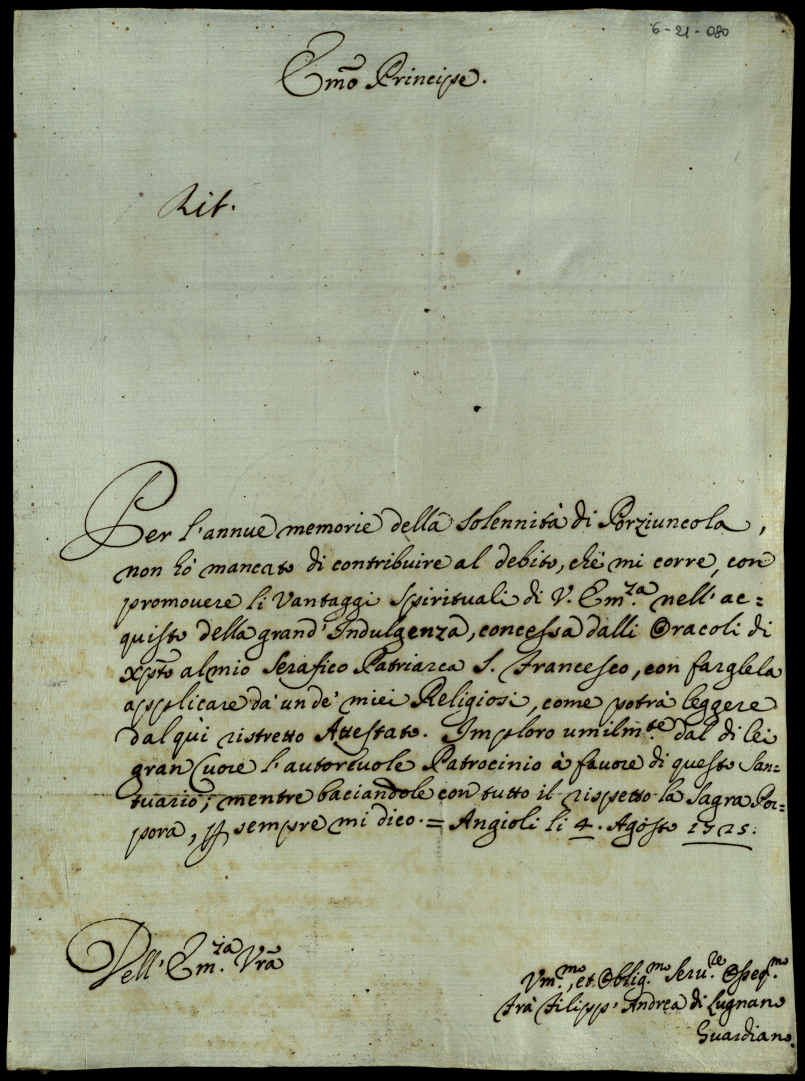 6-21-080
Em̃o Principe.
Rit.
Per l'annue memorie della solennità di Porziuncola,
non hò mancato di contribuire al debito, che mi corre, con
promouere li Vantaggi Spirituali di V. Em.za nell'ac=
quisto della grand'Indulgenza, concessa dalli Oracoli di
Xp̃to al mio Serafico Patriarca S. Francesco, con farglela
applicare da' un de' miei Religiosi, come potrà leggere
dal quì ristretto Attestato. Imploro umilm.te dal di lei
gran Cuore l'autoreuole Patrocinio à fauore di questo San=
tuario; mentre baciandole con tutto il rispetto la Sagra Por=
pora, p sempre mi dico. = Angioli li 4. Agosto 1725.
Dell'Em.za Vrã
Vm.mo, et Oblig.mo Seru.re Osseq.mo
Frà Filipp'Andrea di Lugnano
Guardiano.